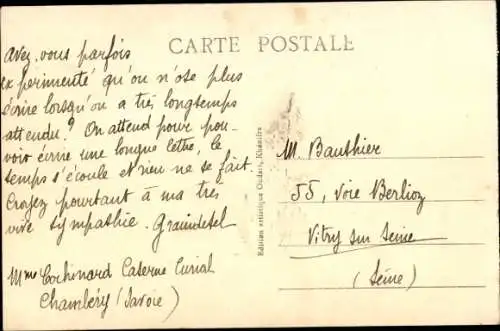 CARTE POSTALE
Avez-vous parfois
expérimenté qu'on n'ose plus
écrire lorsqu'on a très longtemps
attendu? On attend pour pou-
voir écrire une longue lettre, le
temps s'écoule et rien ne se fait.
Croyez pourtant à ma très
vive sympathie.
Mme Cochinard Caserne Curial
Chambéry (Savoie)
Edition artistique Oudart, Khénifra
M. Bauthier
55, Voie Berlioz
Vitry sur Seine
(Seine)